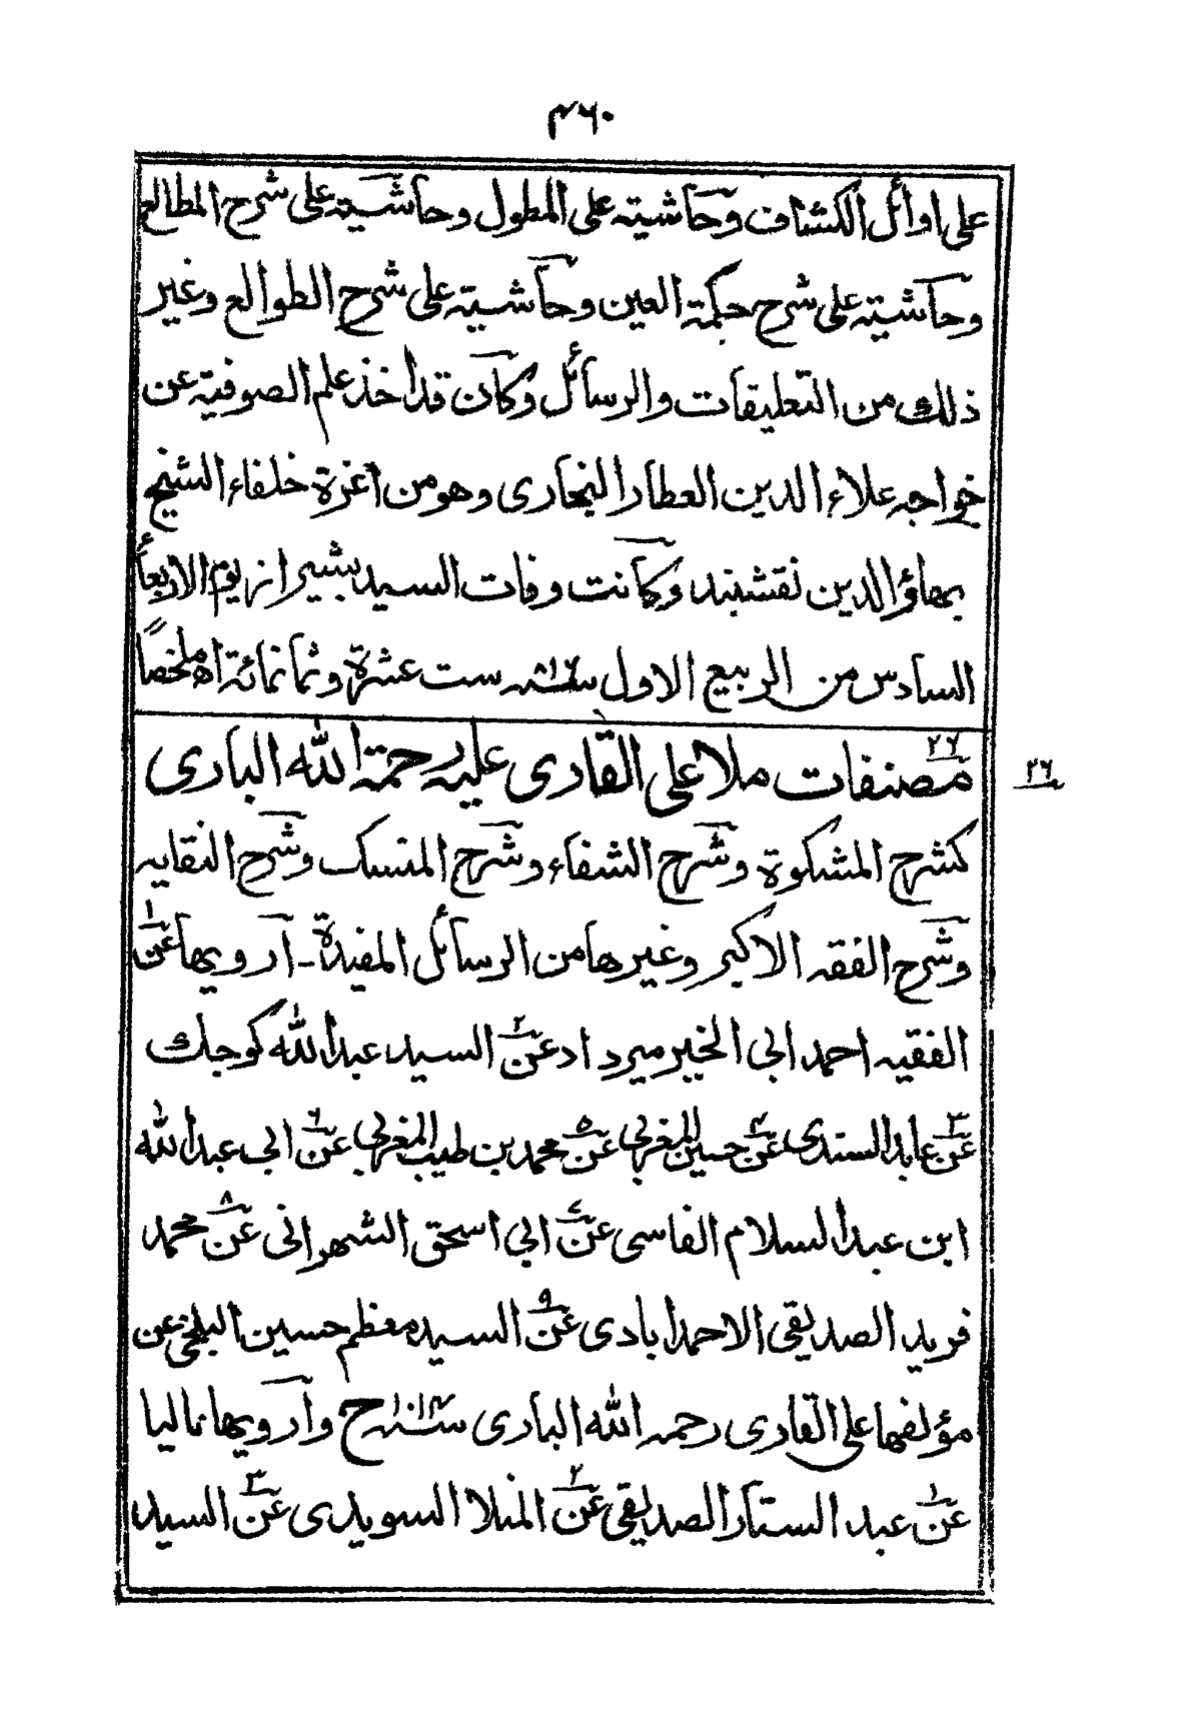 ۴۶۰
علی اوائل الکشاف وحاشیته علی المطول وحاشیته علی شرح المطالع
وحاشیته علی شرح حکمة العین وحاشیته علی شرح الطوالع وغیر
ذلك من التعلیقات والرسائل وکان قد اخذ علم الصوفیة عن
خواجه علاء الدین العطار البخاری وهو من اعزة خلفاء الشیخ
بهاؤ الدین نقشبند وکانت وفات السید بشیراز یوم الاربعاء
السادس من الربیع الاول سنة ۸۱۶ ست عشرة وثمانمائة اه ملخصاً
۲۶
مصنفات ملا علی القاری علیه رحمة الله الباری
۲۶
کشرح المشکوة وشرح الشفاء وشرح المنسك وشرح النقایه
وشرح الفقه الاکبر وغیرها من الرسائل المفیدة ـ ارویها عن۱
الفقیه احمد ابی الخیر میرداد عن۲ السید عبد الله کوجك
عن۳ عابد السندی عن۴ حسین المغربی عن۵ محمد بن طیب المغربی عن۶ ابی عبد الله
ابن عبد السلام الفاسی عن۷ ابی اسحق الشهرانی عن۸ محمد
فرید الصدیقی الاحمد ابادی عن۹ السید معظم حسین البلخی عن
مؤلفها علی القاری رحمه الله الباری سنة ۱۰۱۴ ح وارویها نمالیا
عن۱ عبد الستار الصدیقی عن۲ المنلا السویدی عن۳ السید